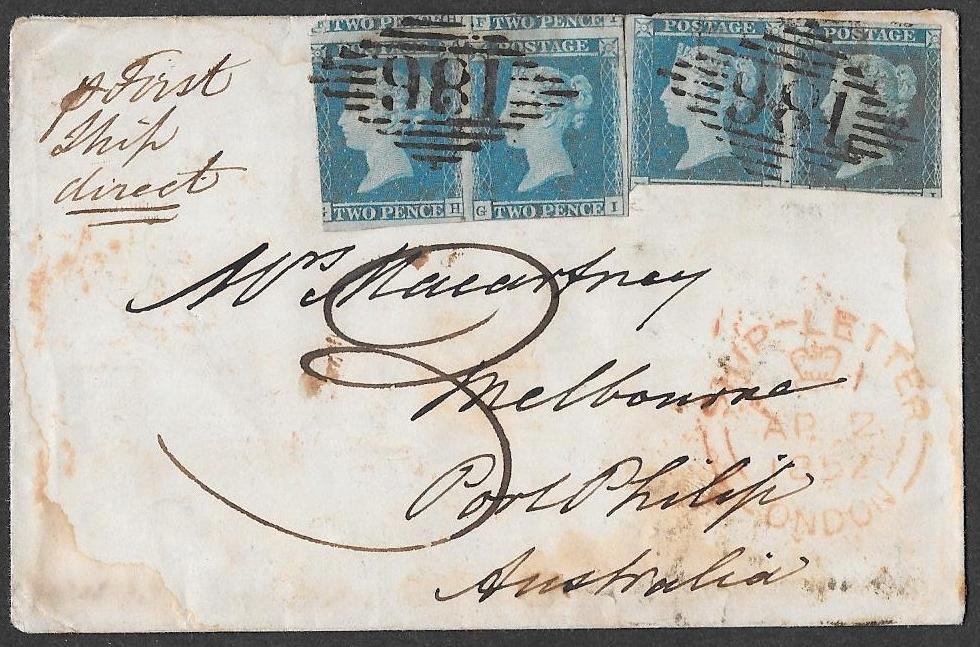 TWO PENCE H F TWO PENCE I
POSTAGE POSTAGE POSTAGE POSTAGE
186 186
TWO PENCE H G TWO PENCE I
I
p First
Ship
direct
Mrs Macartney
3
Melbourne
Port Philip
Australia
SHIP-LETTER
AP 2
1852
LONDON